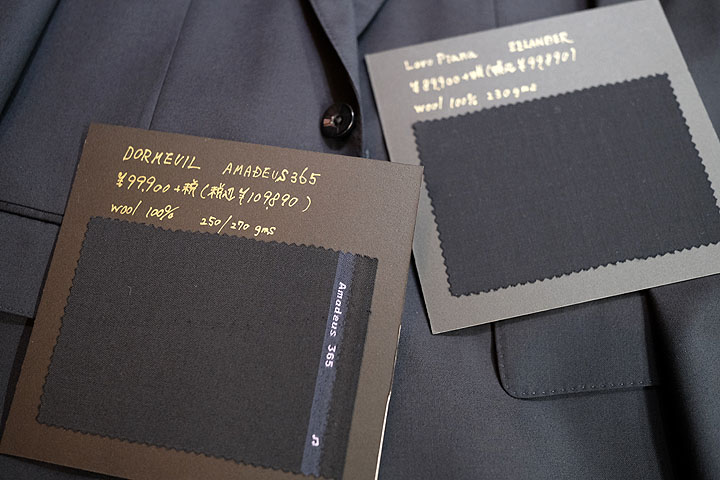 DORMEUIL AMADEUS365
¥99,900+税(税込¥109,890)
wool 100% 250/270 gms
Amadeus 365
Loro Piana ZELANDER
¥89,900+税(税込¥98,890)
wool 100% 230gms